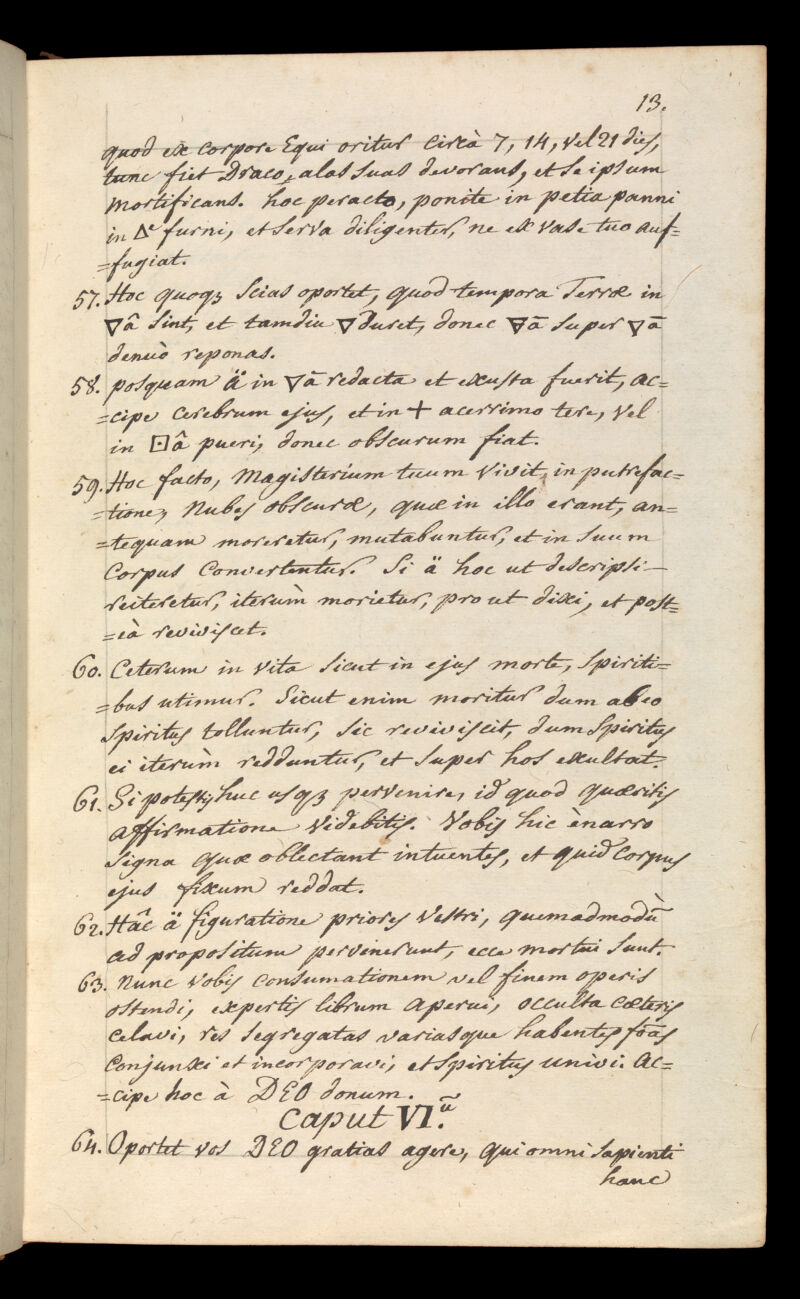 13.
quod ex corpore Equi oritur circà 7, 14, vel 21 dies,
tunc fiet Draco, alas suas devorans, et se ipsum
mortificans. hoc peracto, ponite in petia panni
in 🜂e furni, et serva diligenter, ne ex vase tuo auf=
=fugiat.
57. Hoc quoqȝ scias oportet, quod tempora Terræ in
🜄â sint, et tamdiu 🜄 duret, donec 🜃ā super 🜄ā
denùo reponas.
58. posquam ä in 🜃ā redacta et exusta fuerit, ac=
=cipe cerebrum ejus, et in + acerrimo tere, vel
in ⊡â pueri, donec obscurum fiat.
59. Hoc facto, Magisterium tuum vivit, in putrefac=
=tione, Nubes obscuræ, quæ in illo erant, an=
=tequam moreretur, mutabuntur, et in suum
Corpus convertentur. Si ä hoc ut descripsi
reiteretur, iterùm morietur, pro ut dixi, et post=
=eà reviviscet.
60. Ceterum in vita sicut in ejus morte, spiriti=
=bus utimur. Sicut enim moritur dum ab eo
spiritus tolluntur, sic reviviscit, dum spiritus
ei iterùm redduntur, et super hos exultat.
61. Si potestis huc usqȝ pervenire, id quod quæritis
affirmatione videbitis. Vobis hic ènarro
signa quæ oblectant intuentes, et quid corpus
ejus fixum reddat.
62. Hâc ä figuratione priores vestri, quemadmodũ
ad propositum pervinerunt, ecce mortui sunt.
63. Nunc vobis consumationem vel finem operis
ostendi, expertis librum aperui, occulta cæteris
celavi, res segregatas variasque habentes fõas
conjunxi et incorporavi, et spiritus univi. Ac=
=cipe hoc à DEO donum.
Caput VI.ũ
64. Oportet vos DEO gratias agere, qui omni sapienti
hanc